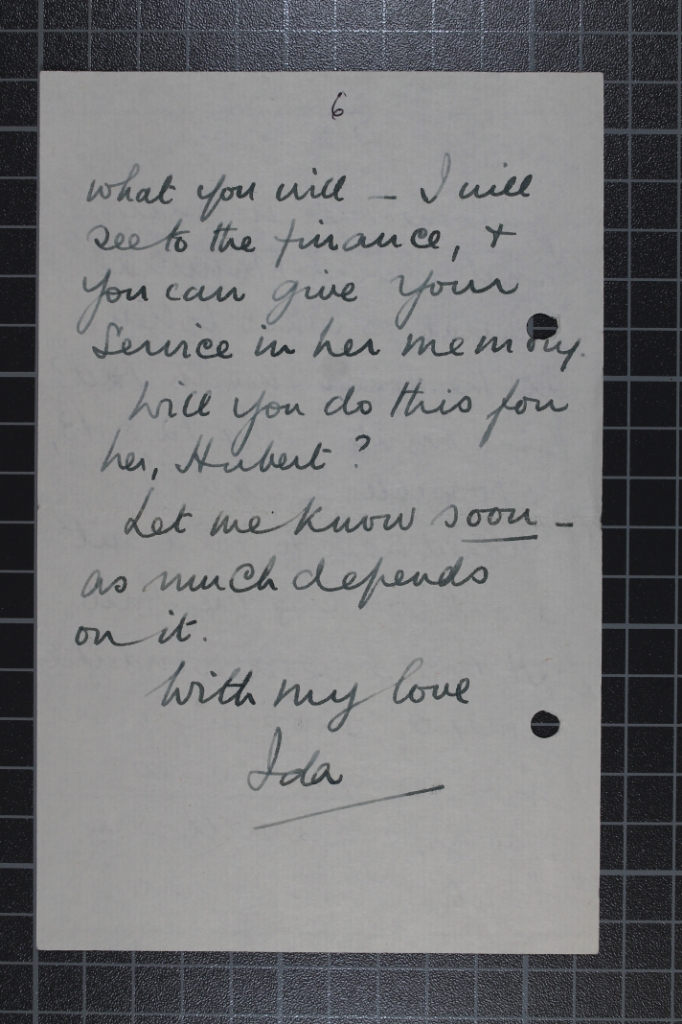 6
what you will – I will
see to the finance, +
you can give your
Service in her memory.
Will you do this for
her, Hubert?
Let me know soon –
as much depends
on it.
With my love
Ida